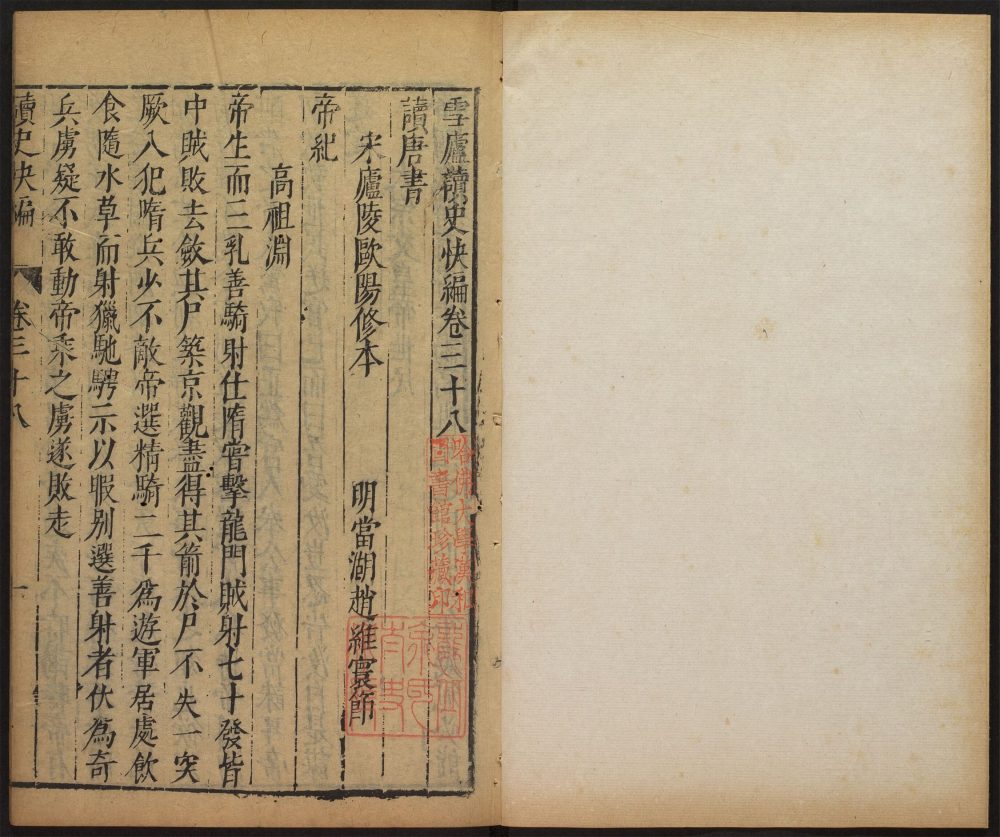 雪廬讀史快編卷三十八
讀唐書
宋廬陵歐陽修本 明當湖趙維寰節
帝紀
高祖淵
帝生而三乳善騎射仕隋嘗擊龍門賊射七十發皆
中賊敗去斂其尸築京觀盡得其箭於尸不失一突
厥入犯隋兵少不敵帝選精騎二千爲遊軍居處飲
食隨水草而射獵馳騁示以暇别選善射者伏爲奇
兵虜疑不敢動帝乘之虜遂敗走
讀史快編 卷三十八 一
哈佛大學漢和
圖書館珍藏印